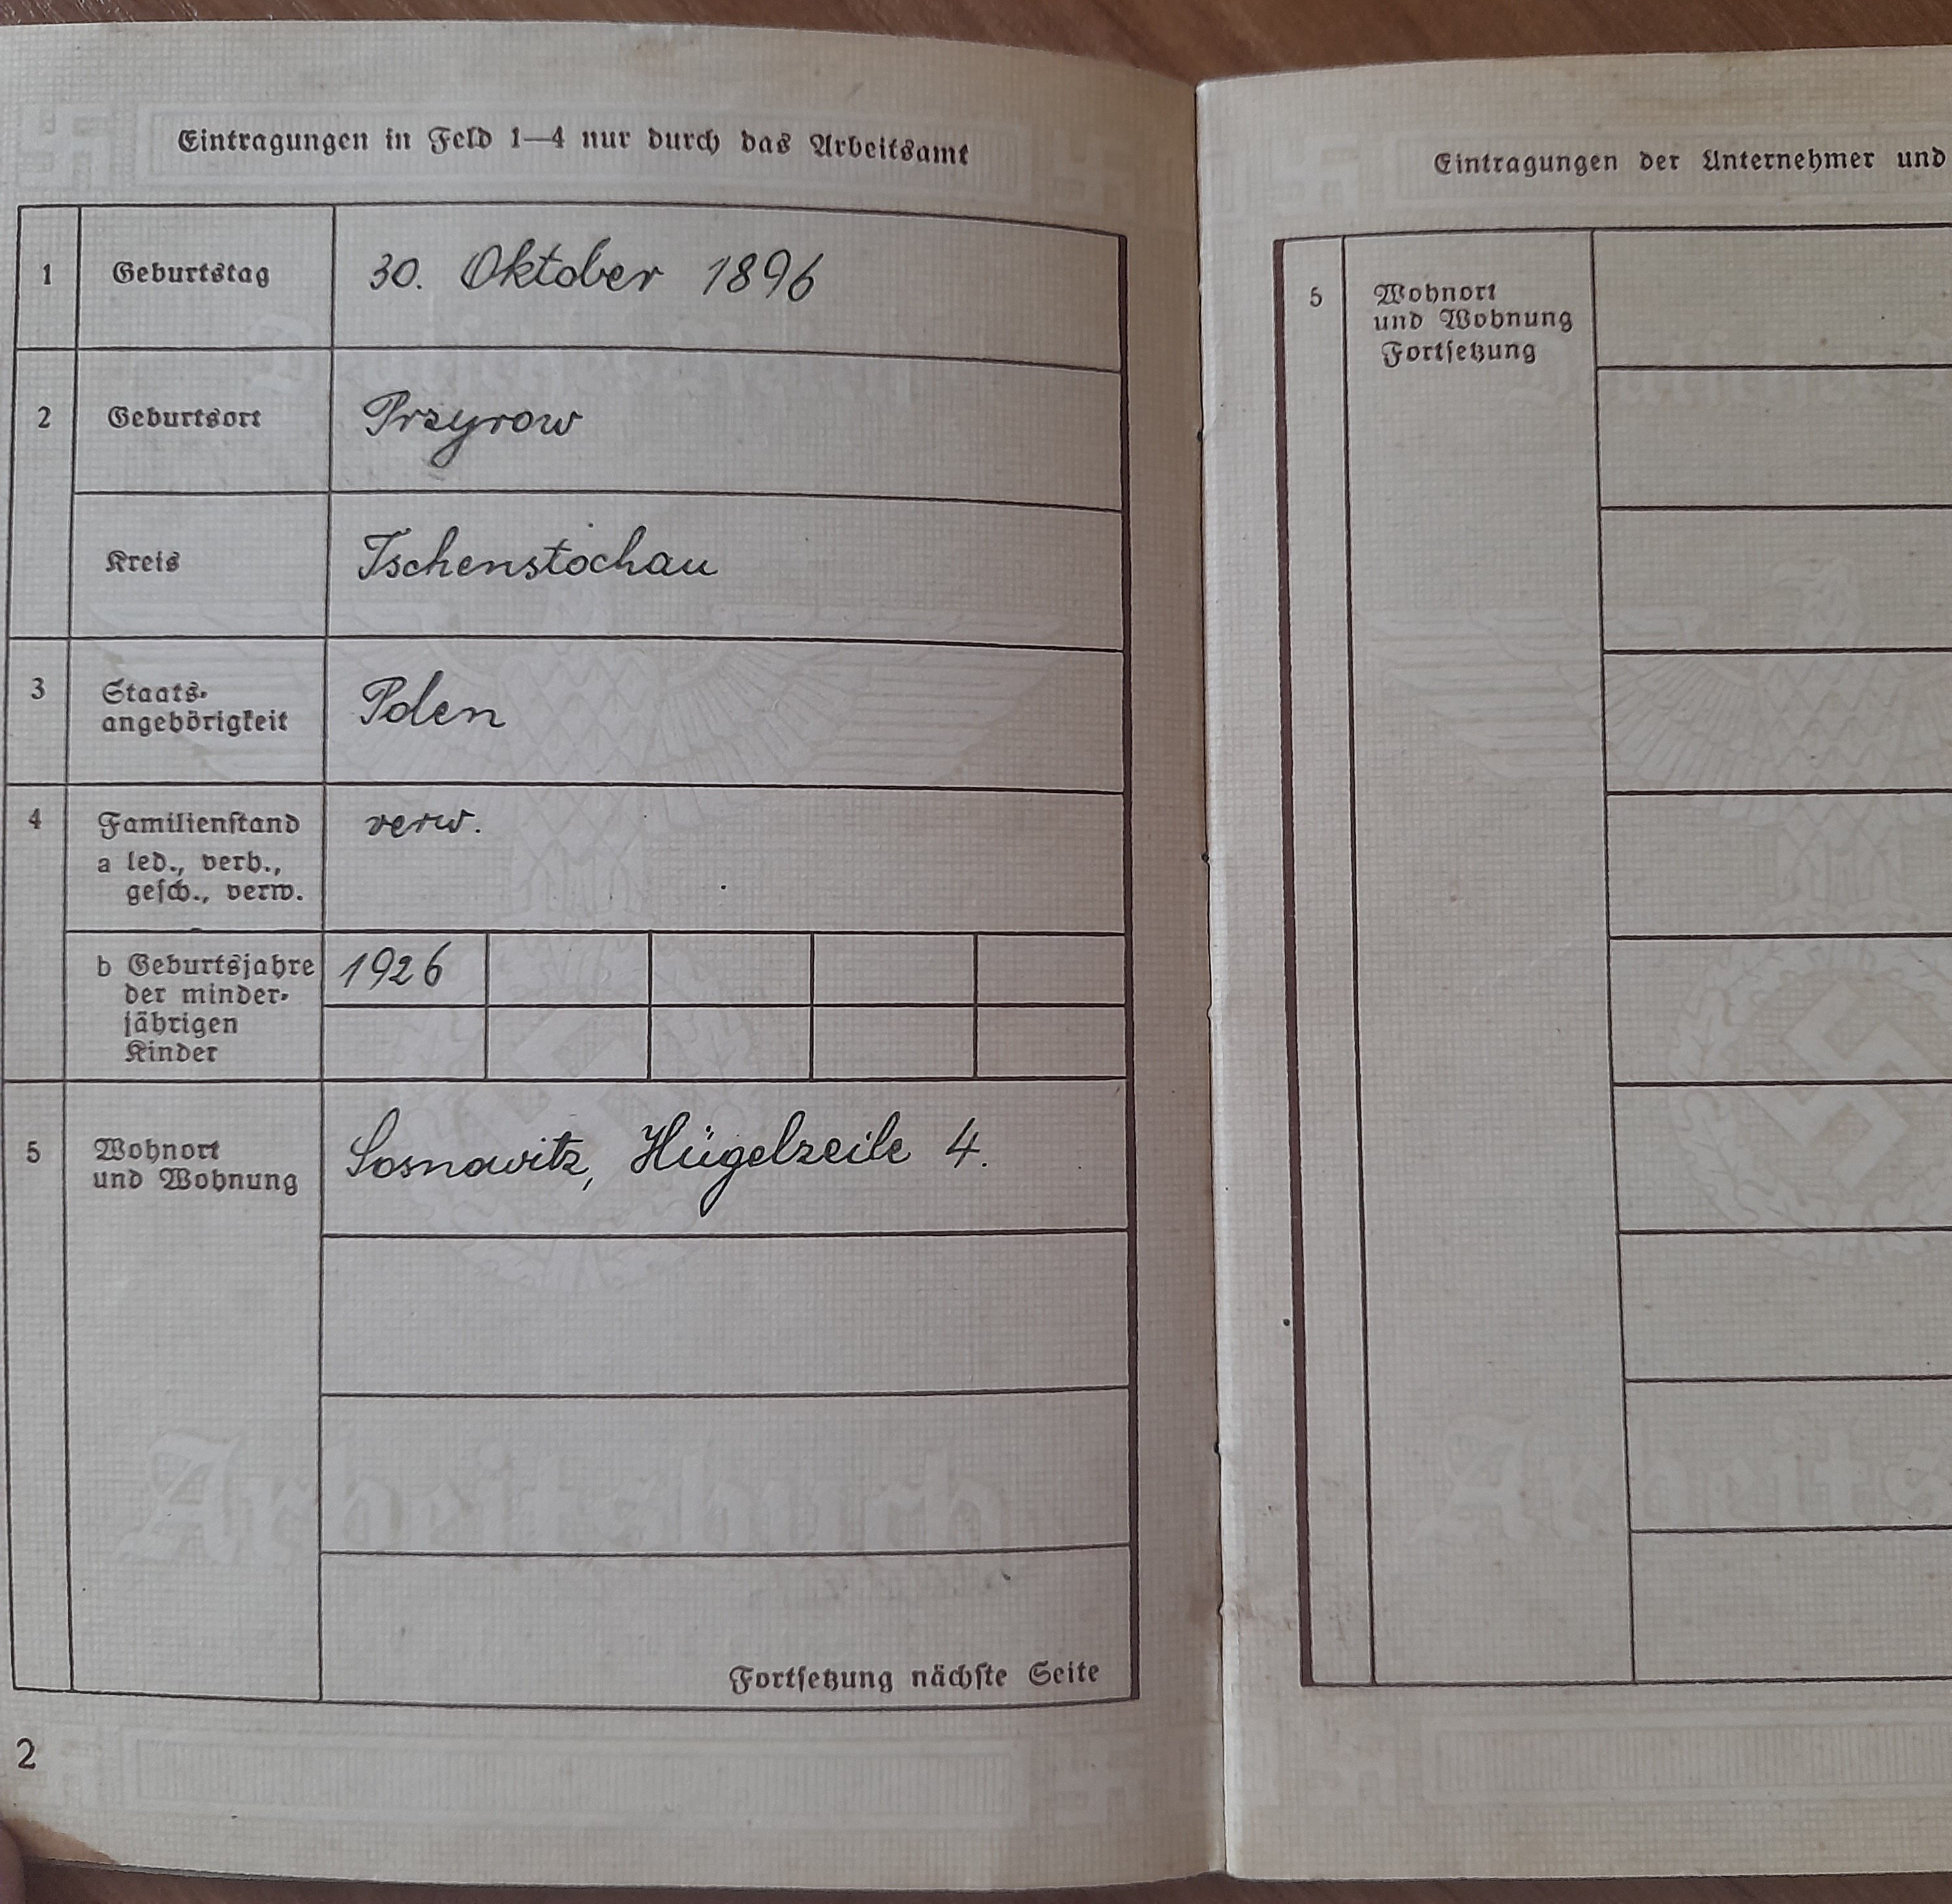 Eintragungen in Feld 1—4 nur durch das Arbeitsamt
1 Geburtstag 30. Oktober 1896
2 Geburtsort Przyrow
Kreis Tschenstochau
3 Staats-
angehörigkeit Polen
4 Familienstand verw.
a led., verh.,
gesch., verw.
b Geburtsjahre 1926
der minder-
jährigen
Kinder
5 Wohnort Sosnowitz, Hügelzeile 4.
und Wohnung
Arbeitsbuch
Fortsetzung nächste Seite
2
Eintragungen der Unternehmer und
5 Wohnort
und Wohnung
Fortsetzung